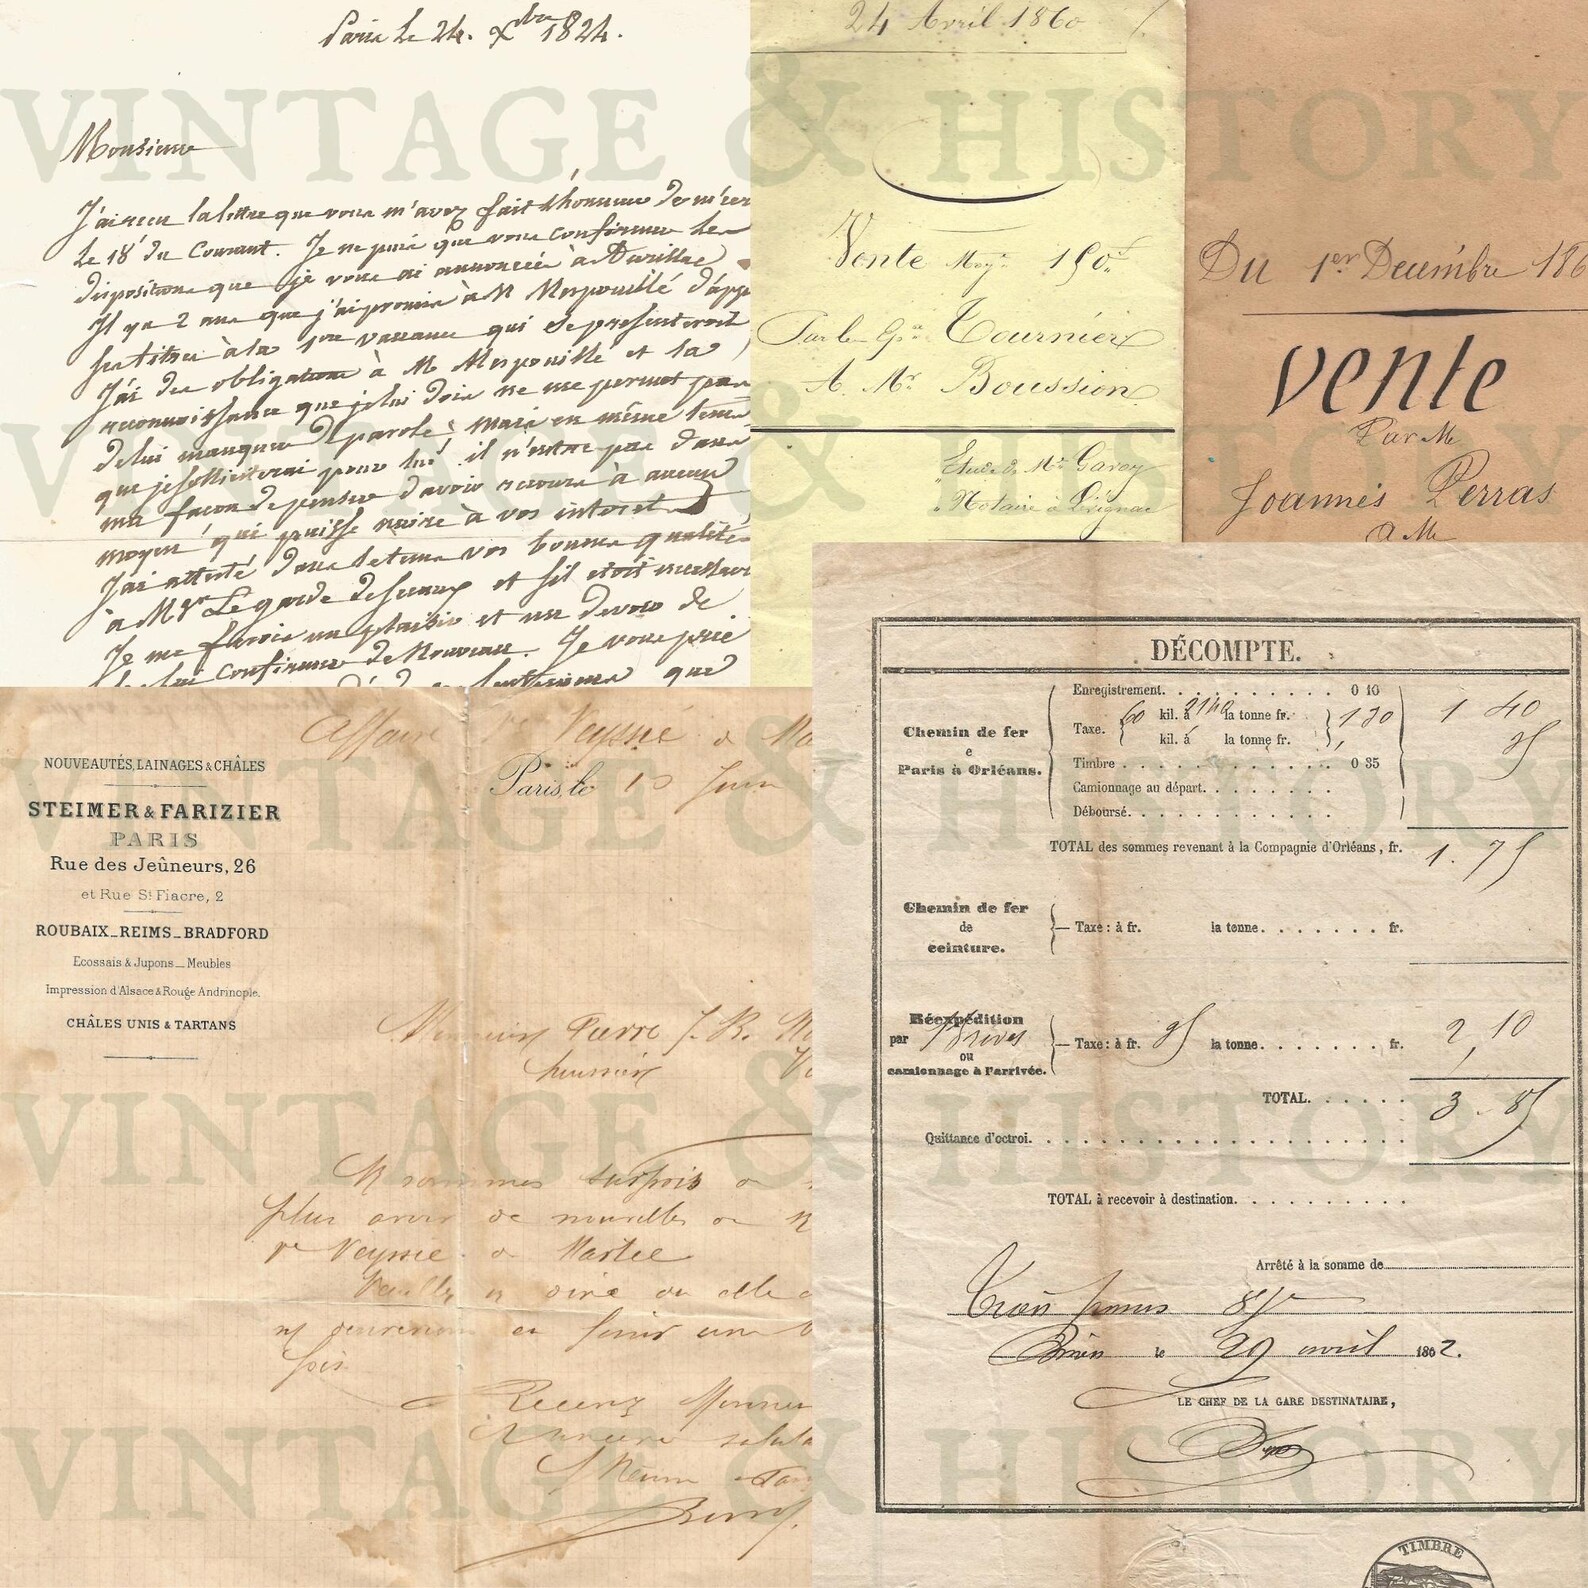 Paris le 24. Xbre 1824.
Monsieur
J'ai reçu la lettre que vous m'avez fait l'honneur de m'écr
le 18 du Courant. Je ne puis que vous confirmer les
dispositions que je vous ai annoncées à Aurillac
Il y a 2 ans que j'ai promis à M Mespouillé d'app
ses titres à la 1re vacance qui se présenteroit
J'ai des obligations à M Mespouille et la
reconnoissance que je lui dois ne me permet pas
de lui manquer de parole; mais en même tems
que je solliciterai pour lui il n'entre pas dans
ma façon de penser d'avoir recours à aucun
moyen qui puisse nuire à vos interets
J'ai attesté dans le tems vos bonnes qualités
à Mgr Le garde des sceaux et s'il etoit necessair
Je me ferois un plaisir et un devoir de
confirmer de Nouveau. Je vous prie
que
24 Avril 1860
Vente Moy. 150f
Par le Tournier
A Mr Boussion
Etude de Me Garay
Notaire à
Du 1er Decembre 186
vente
Par Me
Joannès Perras
a Me
Affaire Ve Veyssié a Ma
NOUVEAUTÉS, LAINAGES & CHÂLES
STEIMER & FARIZIER
PARIS
Rue des Jeûneurs, 26
et Rue St Fiacre, 2
ROUBAIX_REIMS_BRADFORD
Ecossais & Jupons_Meubles
Impression d'Alsace & Rouge Andrinople.
CHÂLES UNIS & TARTANS
Paris, le 10 Juin
Monsieur Pierre J. B.
huissier
N sommes surpris de
plus avoir de nouvelles de
Ve Veyssié a Martel
Veuillez n dire si elle
ns en finir une
fois
Recevez Monsieur
sincères saluta
DÉCOMPTE.
Chemin de fer
de
Paris à Orléans.
Enregistrement. . . . . . . . . . . 0 10
Taxe. 60 kil. à la tonne fr. 1 30
kil. à la tonne fr.
Timbre . . . . . . . . . . . . . 0 35
Camionnage au départ. . . . . . .
Déboursé. . . . . . . . . . . .
1 40
35
TOTAL des sommes revenant à la Compagnie d'Orléans, fr. 1. 75
Chemin de fer
de
ceinture.
Taxe: à fr. la tonne. . . . . . . fr.
Réexpédition
par Brives
ou
camionnage à l'arrivée.
Taxe: à fr. 35 la tonne. . . . . . . fr. 2, 10
TOTAL. . . . . . 3. 85
Quittance d'octroi. . . . . . . . . . . . . . . . . . . . .
TOTAL à recevoir à destination. . . . . . . . . .
Arrêté à la somme de
Trois francs 85c
le 29 avril 1862.
LE CHEF DE LA GARE DESTINATAIRE,
TIMBRE
VINTAGE & HISTORY
VINTAGE & HISTORY
VINTAGE & HISTORY
VINTAGE & HISTORY
VINTAGE & HISTORY